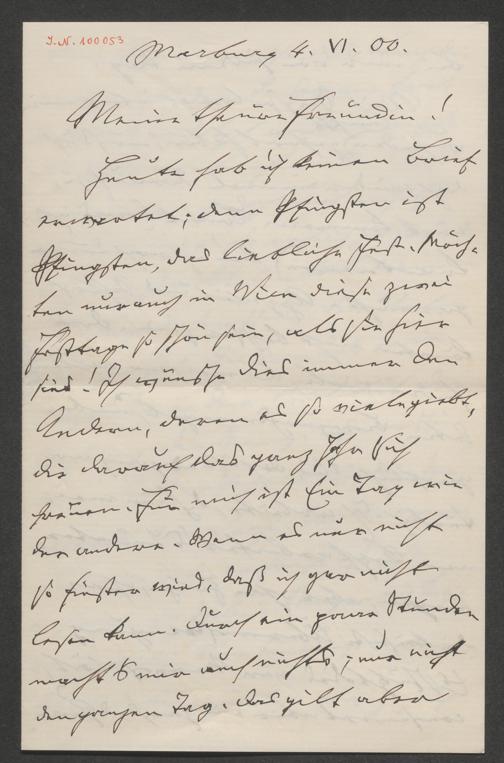 J.-N. 100053
Marburg 4. VI. 00.
Meine theure Freundin!
Heute hab' ich keinen Brief
erwartet; denn Pfingsten ist
Pfingsten, das liebliche Fest. Möch-
ten nur auch in Wien diese zwei
Festtage so schön sein, als sie hier
sind! Ich wünsche dies immer den
Andern, deren es so viele giebt,
die darauf das ganze Jahr sich
freuen. Für mich ist Ein Tag wie
der andere. Wenn es nur nicht
so finster wird, daß ich gar nicht
lesen kann. Durch ein paar Stunden
macht's mir auch nichts; nur nicht
den ganzen Tag. Das gilt aber